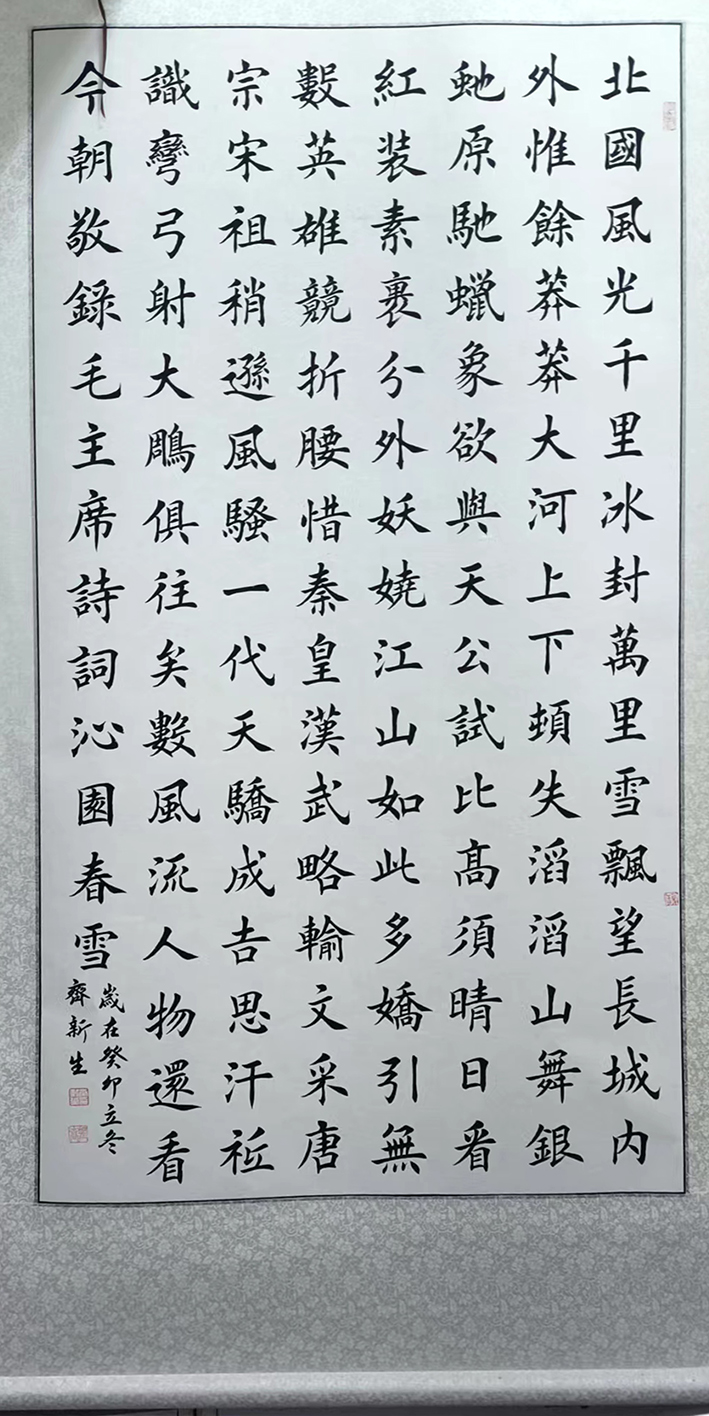 北國風光千里冰封萬里雪飄望長城内
外惟餘莽莽大河上下頓失滔滔山舞銀
虵原馳蠟象欲與天公試比髙須晴日看
紅装素裹分外妖嬈江山如此多嬌引無
數英雄競折腰惜秦皇漢武略輸文采唐
宗宋祖稍遜風騷一代天驕成吉思汗祗
識彎弓射大鵰俱往矣數風流人物還看
今朝敬錄毛主席詩詞沁園春雪
歲在癸卯立冬
齊新生